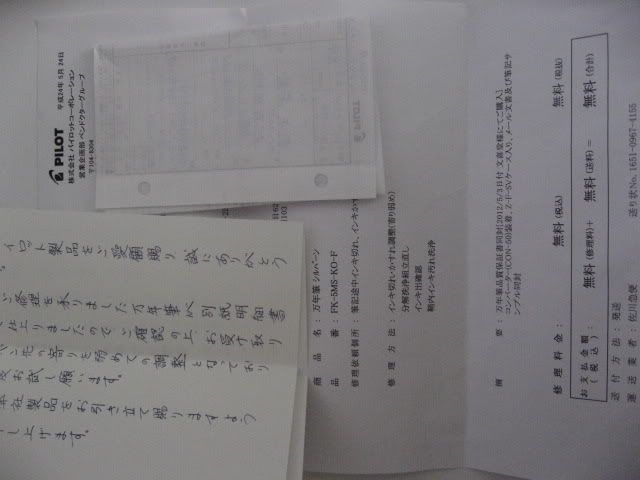 平成24年 5月 24日
PILOT
株式会社 パイロットコーポレーション
営業企画部 ペンドクターグループ
〒104-8304
商品名：万年筆 シルバーン
品番：FK-5MS-KO-F
修理依頼個所：筆記途中インキ切れ、インキか
修理方法：インキ切れ・かすれ調整(寄り弱め)
分解洗浄組立直し
インキ出確認
鞘内インキ汚れ洗浄
摘要：万年筆品質保証書同封[2012/5/3日付 文喜堂様にてご購入]
コンバーター(CON-50)装着、Z-F-SVケース入り、メール文書及び筆記サ
ンプル同封
修理料金：無料(税込) 無料(税抜)
お支払金額：無料(修理料)＋ 無料(送料)＝ 無料(合計)
(税込)
送付方法：発送
運送業者：佐川急便 送り状No. 1651-0967-4155
イロット製品をご愛顧賜り 誠にありがとう
ご修理を承りました万年筆が別紙明細書
仕上りましたのでご確認の上、お受け取り
ペン先の寄りを弱めての調整となっており
度お試し願います。
本社製品をお引き立て賜りますよう
し上げます。